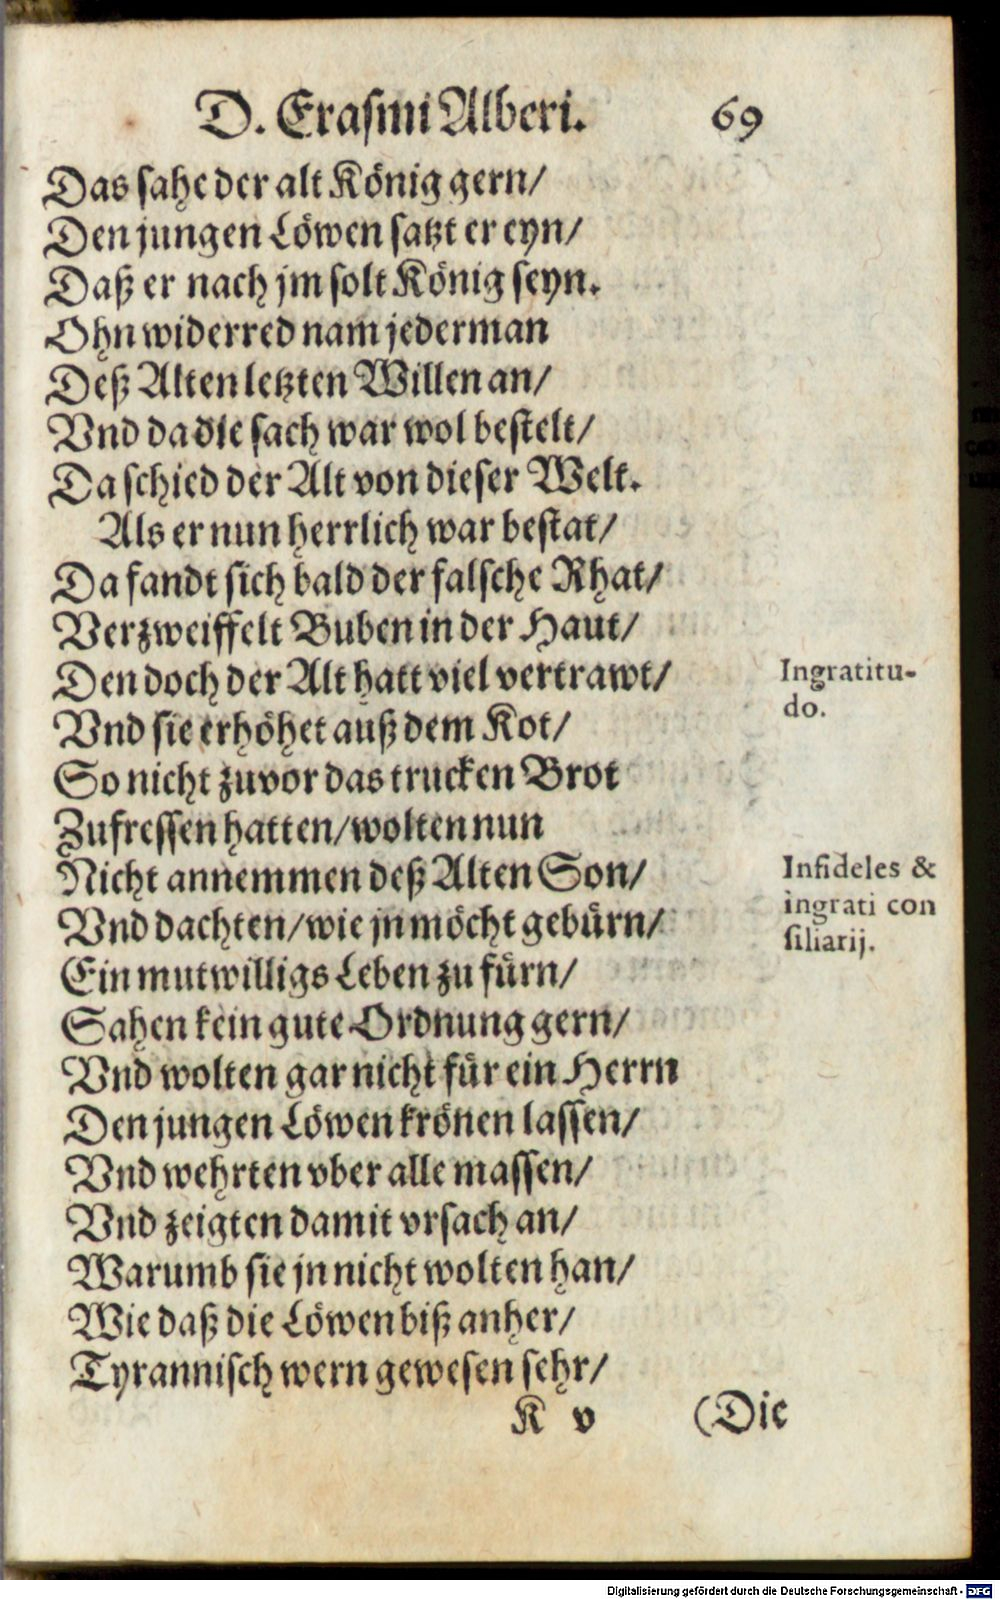 D. Erasmi Alberi. 69
Das sahe der alt König gern/
Den jungen Löwen satzt er eyn/
Daß er nach jm solt König seyn.
Ohn widerred nam jederman
Deß Alten letzten Willen an/
Vnd da die sach war wol bestelt/
Da schied der Alt von dieser Welt.
Als er nun herrlich war bestat/
Da fandt sich bald der falsche Rhat/
Verzweiffelt Buben in der Haut/
Den doch der Alt hatt viel vertrawt/
Ingratitu-
do.
Vnd sie erhöhet auß dem Kot/
So nicht zuvor das trucken Brot
Zufressen hatten/wolten nun
Nicht annemmen deß Alten Son/
Infideles &
ingrati con
siliarij.
Vnd dachten/wie jn möcht gebürn/
Ein mutwilligs Leben zu fürn/
Sahen kein gute Ordnung gern/
Vnd wolten gar nicht für ein Herrn
Den jungen Löwen krönen lassen/
Vnd wehrten vber alle massen/
Vnd zeigten damit vrsach an/
Warumb sie jn nicht wolten han/
Wie daß die Löwen biß anher/
Tyrannisch wern gewesen sehr/
K v (Die
Digitalisierung gefördert durch die Deutsche Forschungsgemeinschaft - DFG